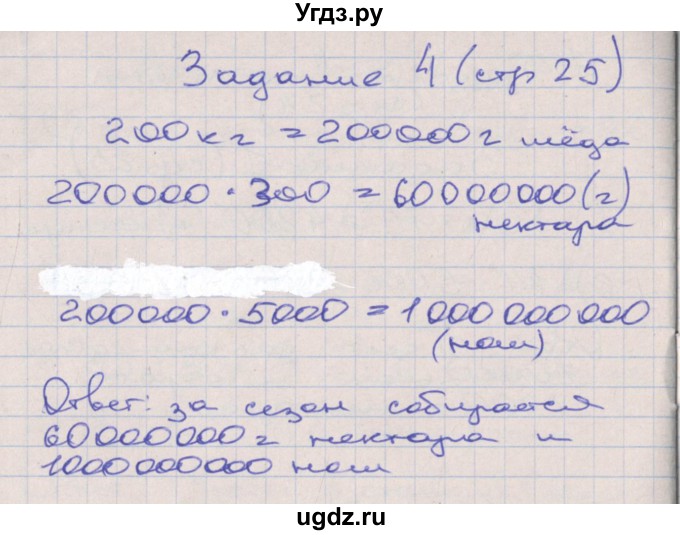 Угдз.ру
Задание 4 (стр 25)
200 кг = 200000 г мёда
200000 · 300 = 60000000 (г)
нектара
200000 · 5000 = 1 000 000 000
(нош)
Ответ: за сезон собирается
60000000 г нектара и
1000000000 нош
ugdz.ru